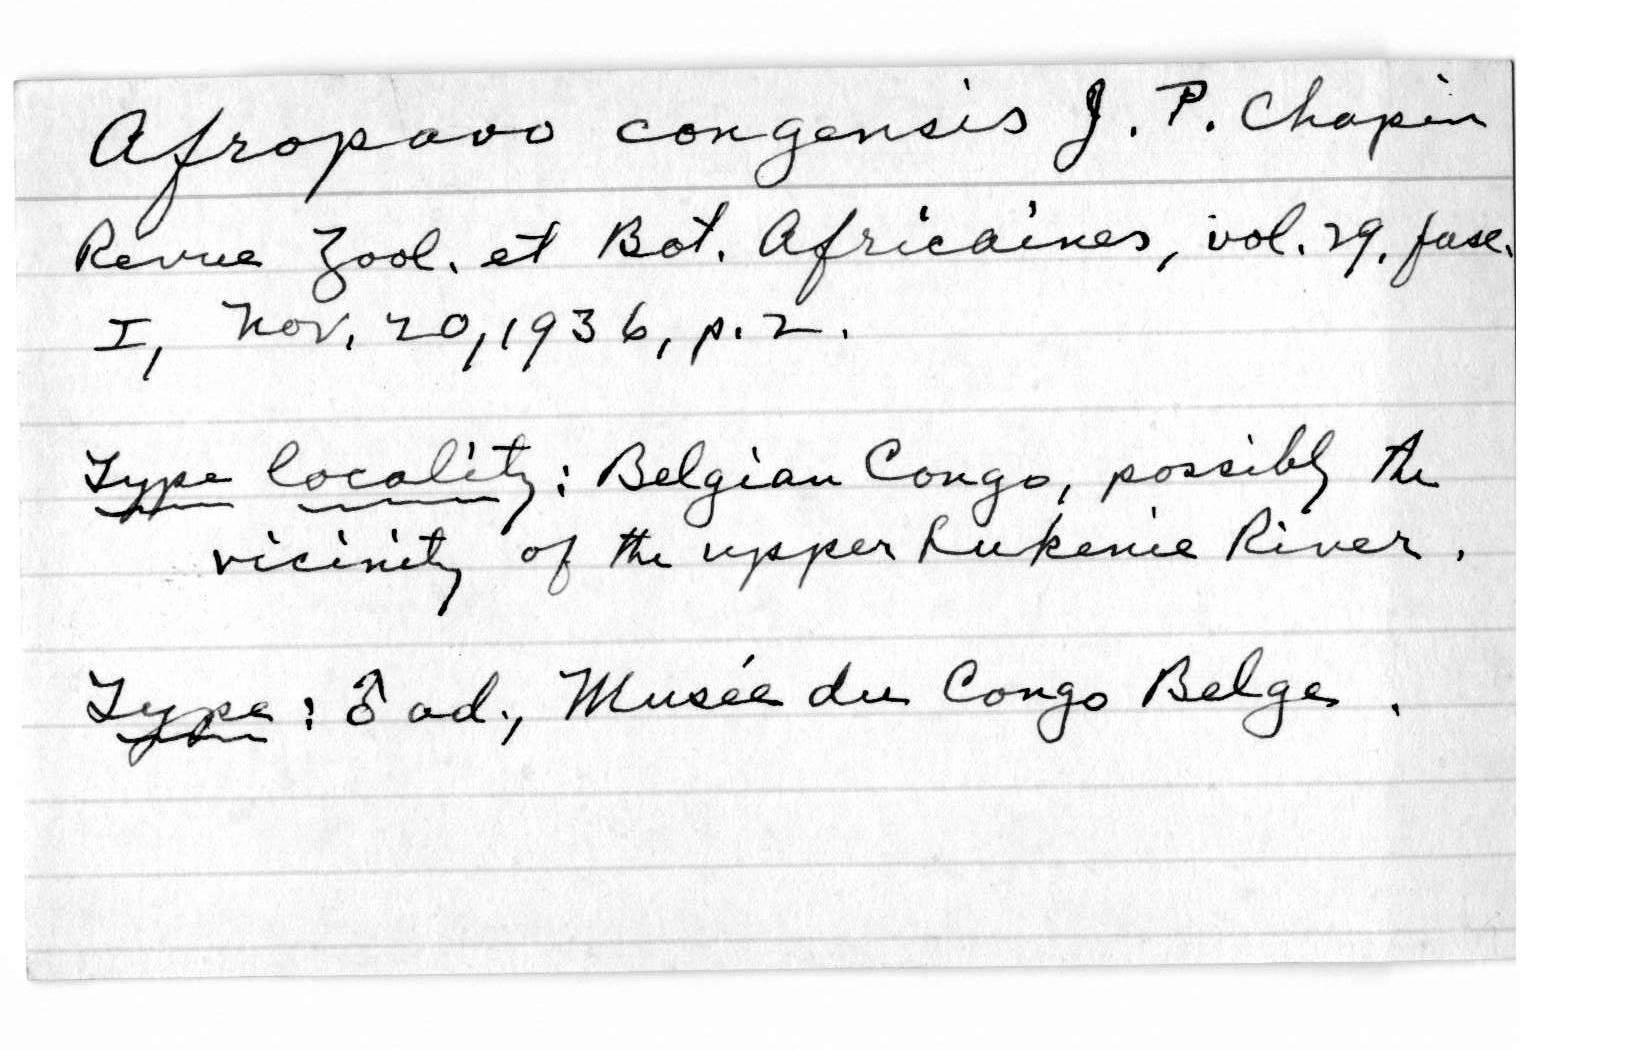 Afropavo congensis J. P. Chapin
Revue Zool. et Bot. Africaines, vol. 29, fasc.
I, Nov. 20, 1936, p. 2.
Type locality: Belgian Congo, possibly the
vicinity of the upper Lukenie River.
Type: ♂ ad., Musée du Congo Belge.